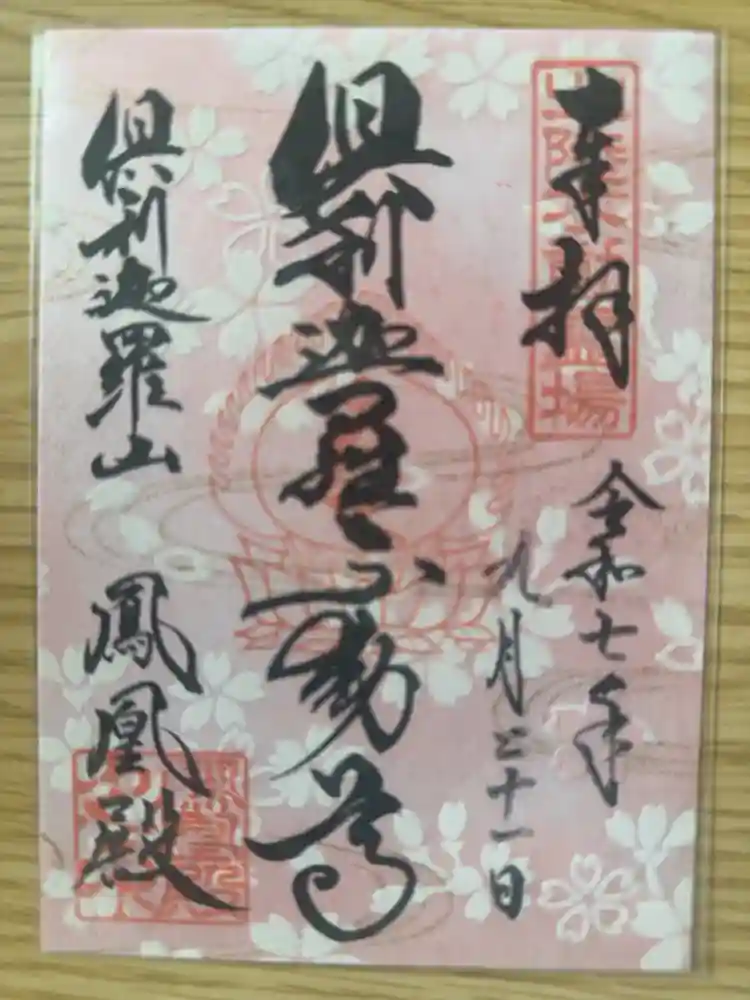 奉拝
令和七年
九月二十一日
倶利迦羅不動尊
倶利迦羅山
鳳凰殿